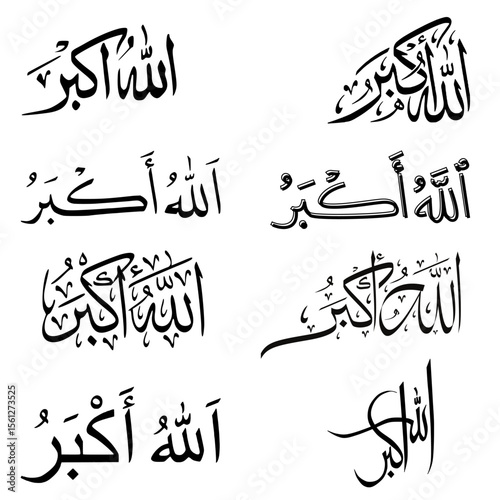 الله اكبر
الله أكبر
اَللهُ أَكْبَرُ
اَللّٰهُ أَكْبَرُ
اللّٰهُ أكبرُ
اللّٰهُ أكبرُ
اَللهُ أَكْبَرُ
الله اكبر
Adobe Stock | #1561273525